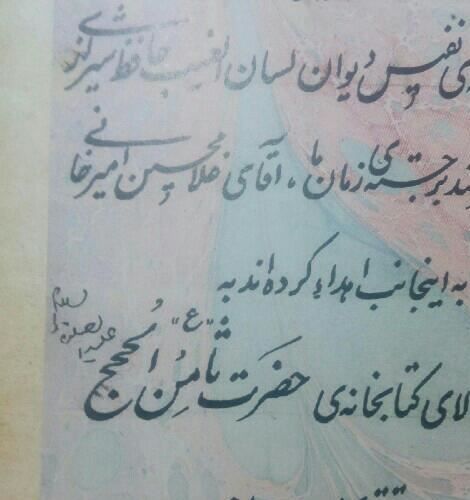 نفیس دیوان لسان الغیب حافظ شیرازی
برجسته‌ی زمان ما، آقای غلامحسین امیرخانی
به اینجانب اهداء کرده‌اند به
لای کتابخانه‌ی حضرت ثامِنُ الحُجج "ع"
علیه الصلوة و السلام